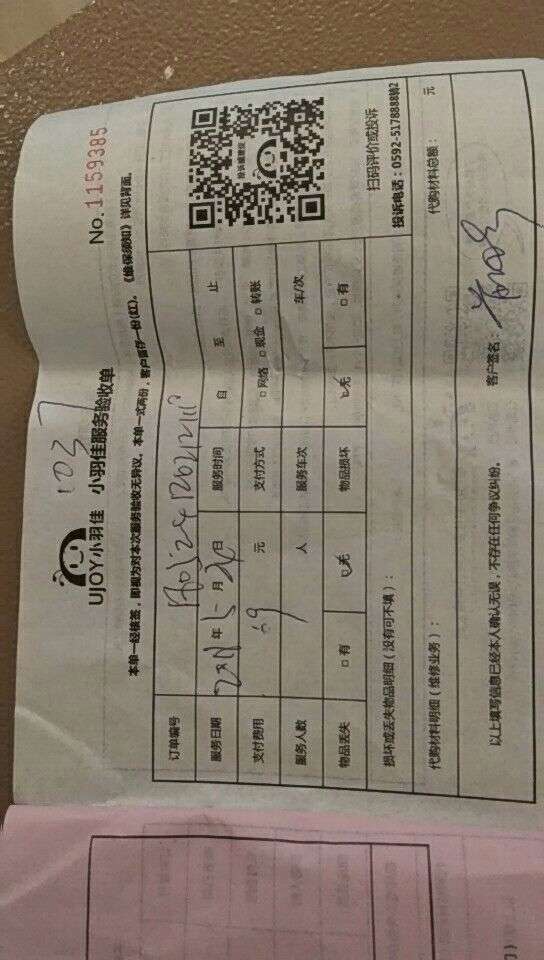 1037
UJOY小羽佳 小羽佳服务验收单
No. 1159385
本单一经核签，即视为对本次服务验收无异议。本单一式两份，客户留存一份(红)。《维保须知》详见背面。
订单编号
服务日期 年 月 日 服务时间 自 至 止
支付费用 元 支付方式 □ 网络 □ 现金 □ 转账
服务人数 人 服务车次 车/次
物品丢失 □ 有 □ 无 物品损坏 □ 无 □ 有
投诉建议
扫码评价或投诉
投诉电话：0592-5178888转2
损坏或丢失物品明细（没有可不填）：
代购材料明细（维修业务）： 代购材料总额： 元
以上填写信息已经本人确认无误，不存在任何争议纠纷。 客户签名：